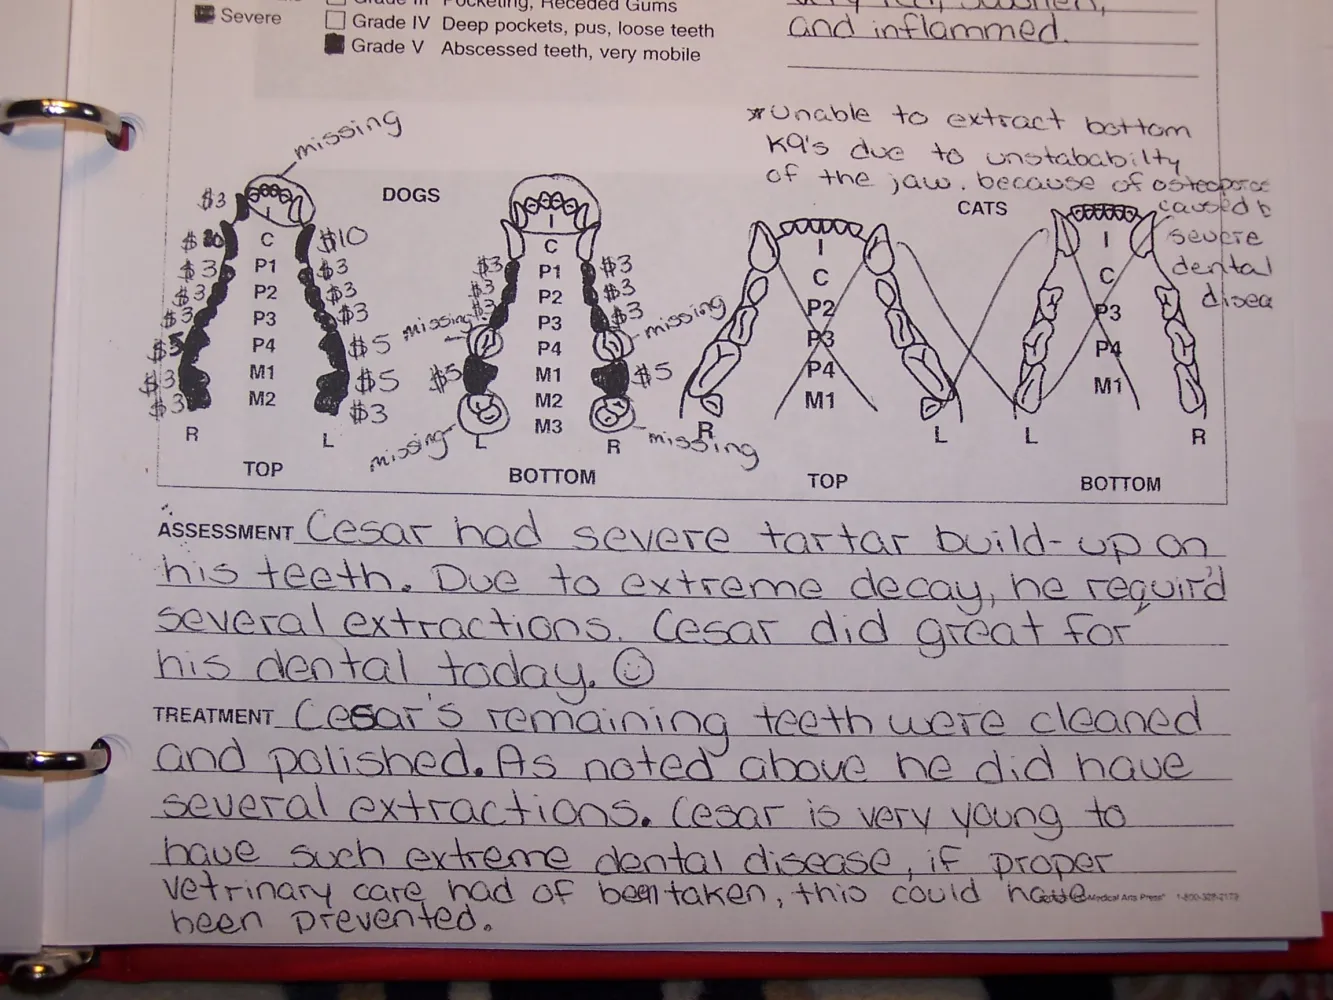 Pocketing, Receded Gums
Severe
Grade IV Deep pockets, pus, loose teeth
Grade V Abscessed teeth, very mobile
and inflammed.
missing
*Unable to extract bottom
K9's due to unstababilty
of the jaw. because of
caused b
severe
dental
disea
DOGS
CATS
$3
I
C
P1
P2
P3
P4
M1
M2
$3
$3
$3
$3
$3
$10
$3
$3
$3
$5
$5
$3
R
L
TOP
I
C
P1
P2
P3
P4
M1
M2
M3
$3
$3
$3
missing
$5
missing
$3
$3
$3
missing
$5
missing
L
R
BOTTOM
I
C
P2
P3
P4
M1
R
L
TOP
I
C
P3
P4
M1
L
R
BOTTOM
ASSESSMENT Cesar had severe tartar build-up on
his teeth. Due to extreme decay, he requir'd
several extractions. Cesar did great for
his dental today. ☺
TREATMENT Cesar's remaining teeth were cleaned
and polished. As noted above he did have
several extractions. Cesar is very young to
have such extreme dental disease, if proper
vetrinary care had of been taken, this could have
been prevented.
Medical Arts Press